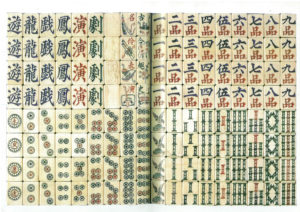 遊 龍 戲 鳳 演 劇 二品 三品 四品 伍品 六品 七品 八品 九品
遊 龍 戲 鳳 演 劇 二品 三品 四品 伍品 六品 七品 八品 九品
遊 龍 戲 鳳 演 劇 二品 三品 四品 伍品 六品 七品 八品 九品
遊 龍 戲 鳳 演 劇 二品 三品 四品 伍品 六品 七品 八品 九品